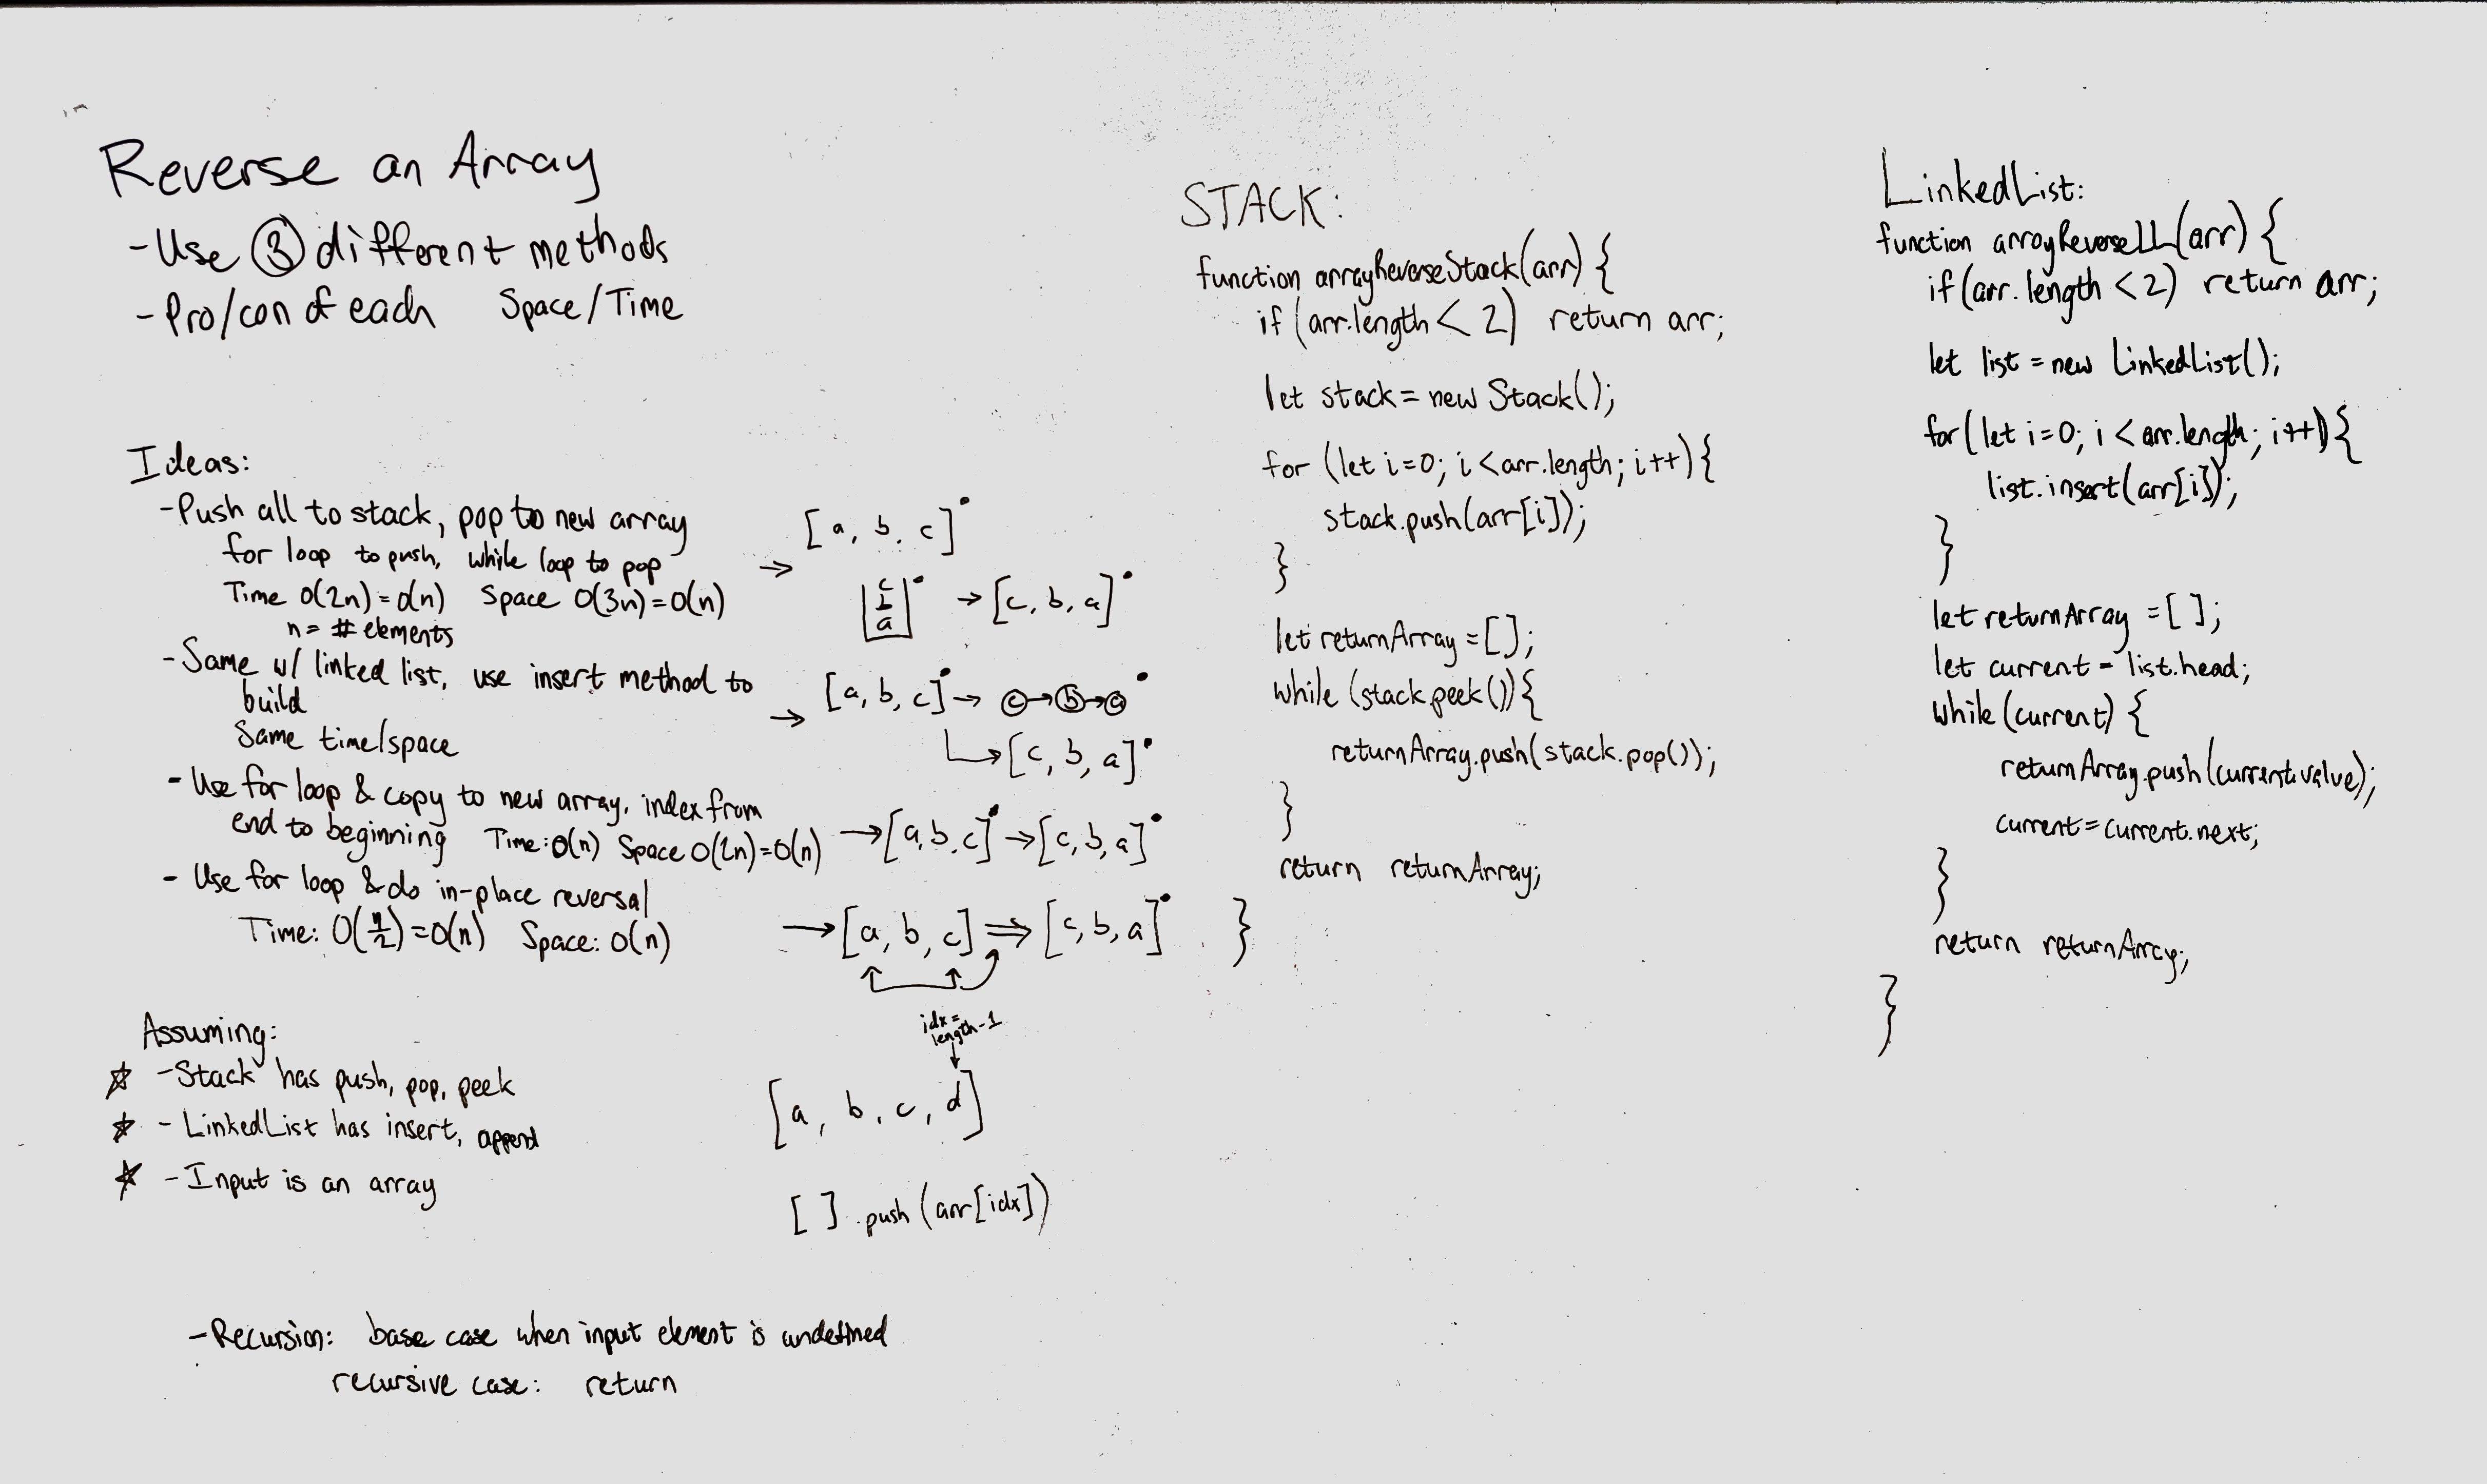 Reverse an Array
- Use ③ different methods
- Pro/con of each Space/Time
Ideas:
- Push all to stack, pop to new array
for loop to push, while loop to pop
Time O(2n) = O(n) Space O(3n) = O(n)
n = # elements
- Same w/ linked list, use insert method to
build
Same time/space
- Use for loop & copy to new array, index from
end to beginning Time: O(n) Space O(2n) = O(n)
- Use for loop & do in-place reversal
Time: O(n/2) = O(n) Space: O(n)
Assuming:
☆ - Stack has push, pop, peek
☆ - LinkedList has insert, append
☆ - Input is an array
- Recursion: base case when input element is undefined
recursive case: return
→ [a, b, c]
c
b
a
→ [c, b, a]
→ [a, b, c] → c → b → a
→ [c, b, a]
→ [a, b, c] → [c, b, a]
→ [a, b, c] ⇒ [c, b, a]
idx =
length-1
[a, b, c, d]
[ ].push(arr[idx])
STACK:
function arrayReverseStack(arr) {
if (arr.length < 2) return arr;
let stack = new Stack();
for (let i=0; i < arr.length; i++) {
stack.push(arr[i]);
}
let returnArray = [];
while (stack.peek()) {
returnArray.push(stack.pop());
}
return returnArray;
}
LinkedList:
function arrayReverseLL(arr) {
if (arr.length < 2) return arr;
let list = new LinkedList();
for (let i=0; i < arr.length; i++) {
list.insert(arr[i]);
}
let returnArray = [ ];
let current = list.head;
while (current) {
returnArray.push(current.value);
current = current.next;
}
return returnArray;
}